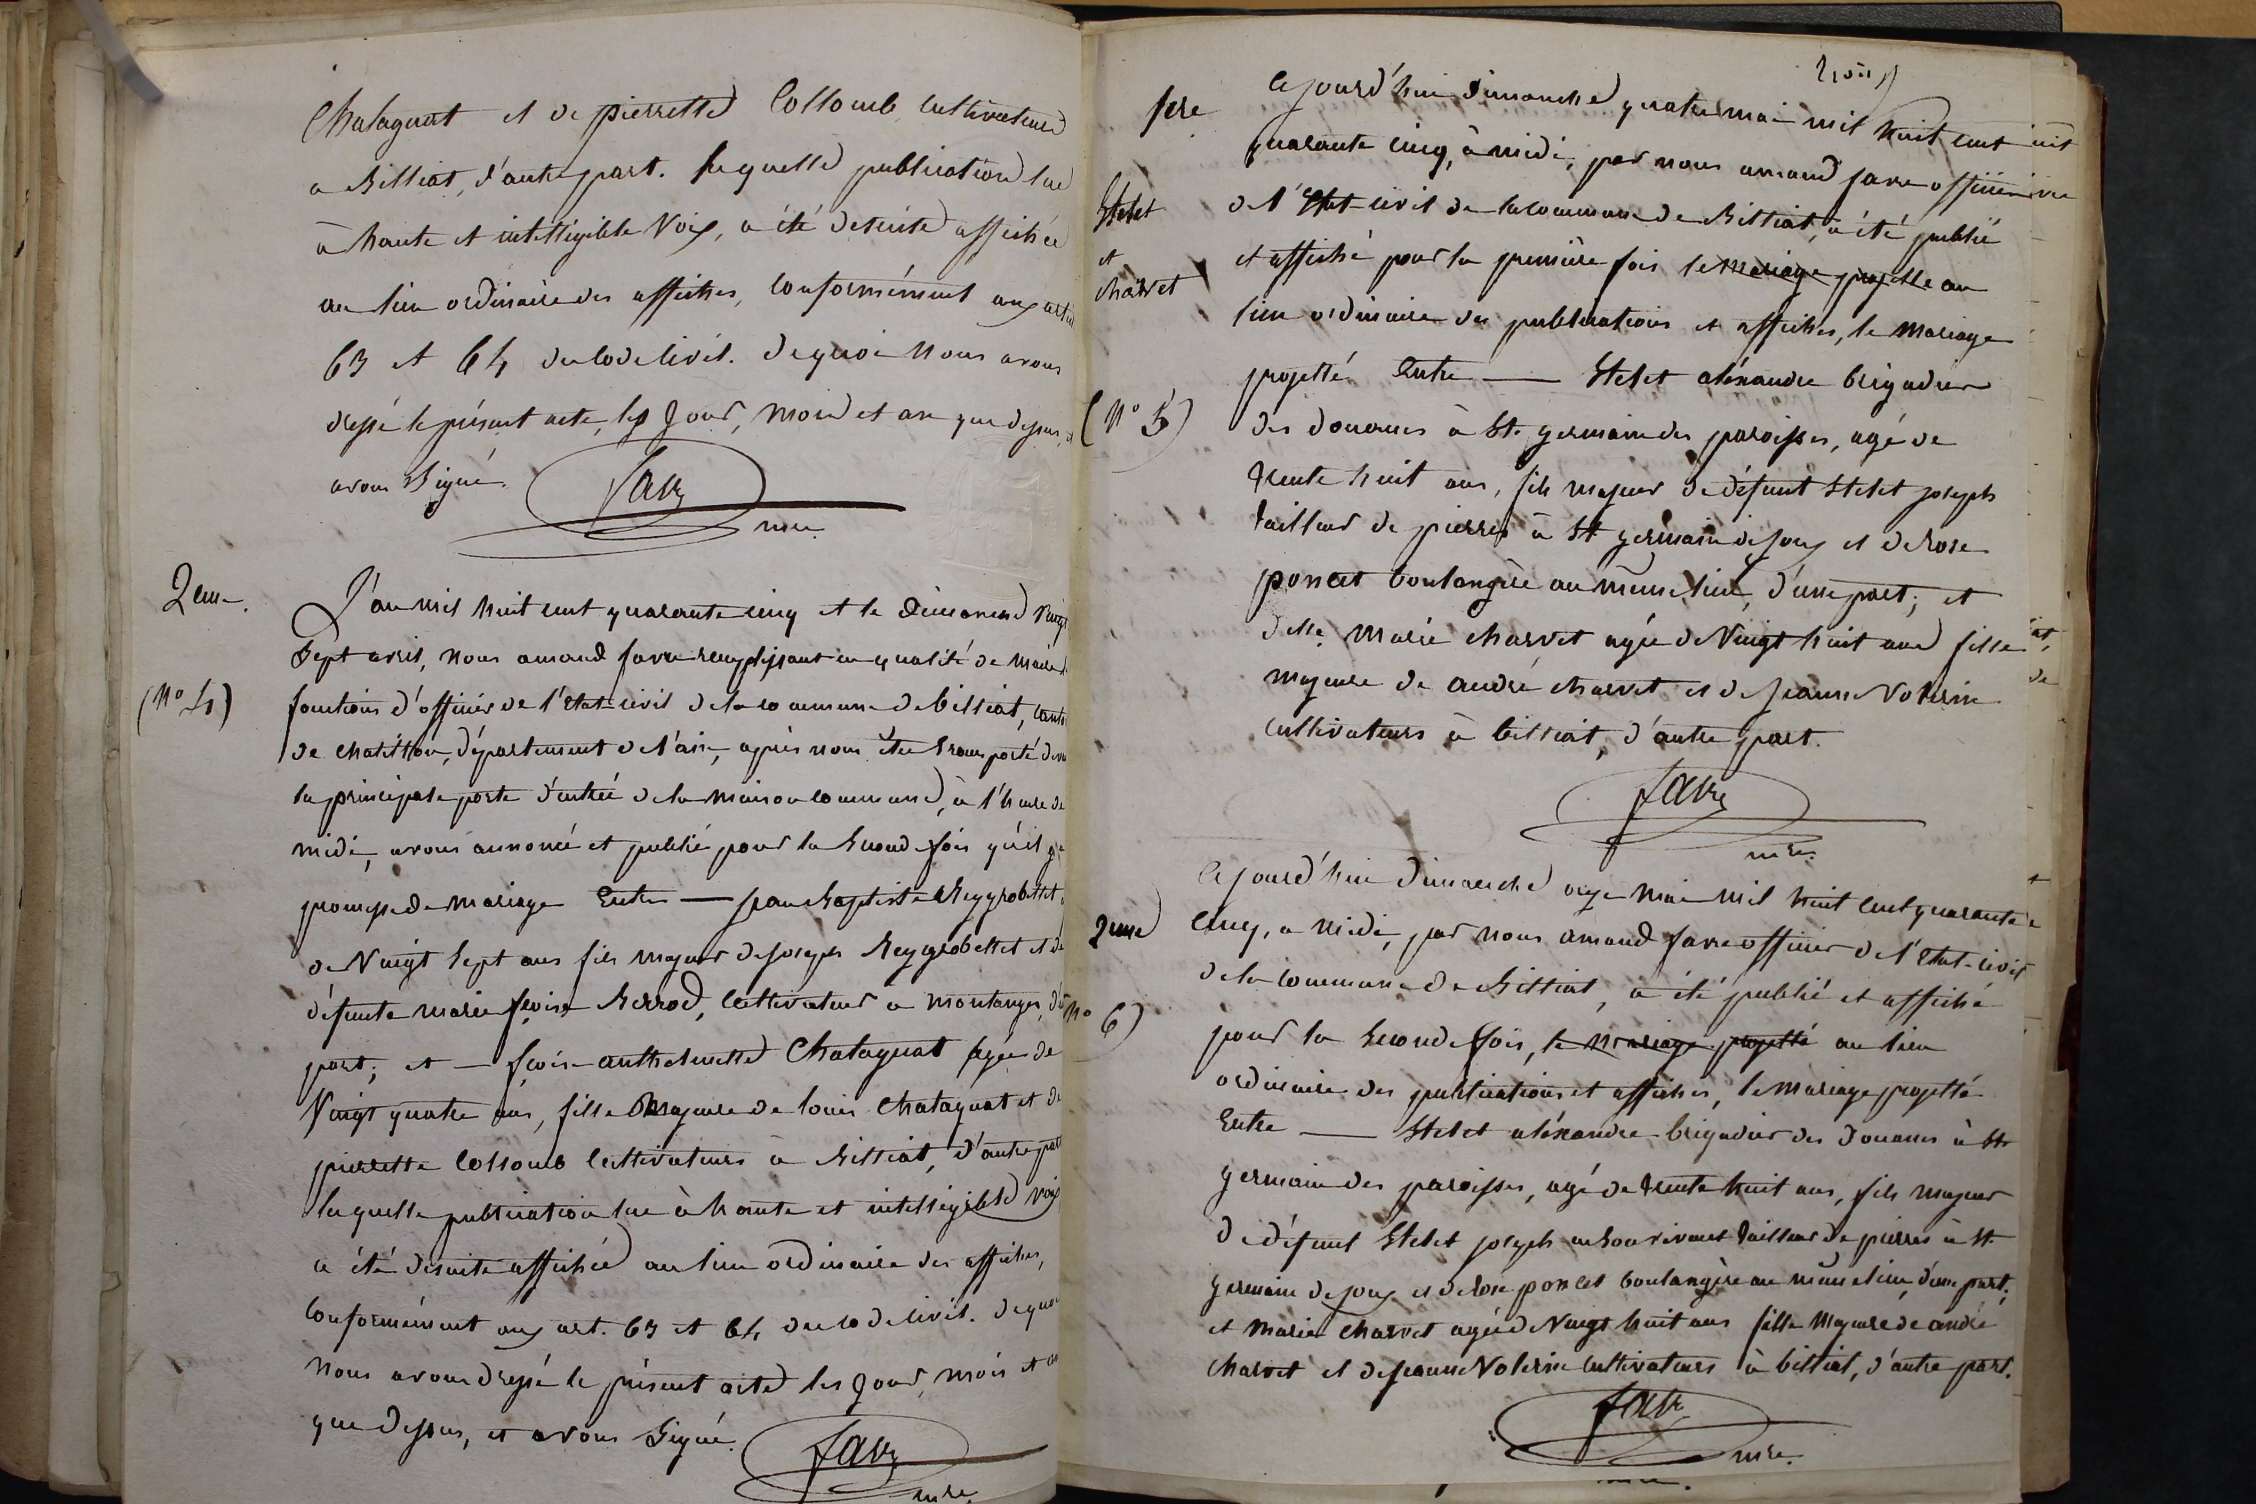 Chatagnat et de pierrette Collomb cultivateurs
a Billiat, d'autre part. Laquelle publication lue
à haute et intelligible voix, a été desuite affichée
au lieu ordinaire des affiches, conformément aux art.
63 et 64 du code civil. de quoi nous avons
dressé le présent acte, les jour, mois et an que dessus, et
avons signé.
favre
mre.
2eme.
(No 4)
L'an mil huit cent quarante cinq et le dimanche vingt
sept avril, nous amand favre remplissant en qualité de maire
fonctions d'officier de l'Etat-civil de la commune de billiat, canton
de chatillon, département de l'ain, après nous être transporté devant
la principale porte d'entrée de la maison commune, à l'heure de
midi, avons annoncé et publié pour la seconde fois qu'il y a
promesse de mariage Entre — jean Baptiste Reygrobellet
de vingt sept ans fils majeur de joseph Reygrobellet et de
défunte marie fçoise Berrod, cultivateur a montanges, d'une
part; et — fçoise anthelmette Chatagnat agée de
vingt quatre ans, fille majeure de louis chatagnat et de
pierrette Collomb cultivateurs a Billiat, d'autre part
laquelle publication lue à haute et intelligible voix
a été desuite affichée au lieu ordinaire des affiches,
conformément aux art. 63 et 64 du code civil. de quoi
nous avons dressé le présent acte les jour, mois et an
que dessus, et avons signé.
favre
mre.
trois
1ere
Stelet
et
charvet
(No 5)
Cejourd'hui dimanche quatre mai mil huit cent
quarante cinq, à midi, par nous amand favre officier
de l'Etat-civil de la commune de Billiat, a été publié
et affiché pour la première fois le mariage projetté au
lieu ordinaire des publications et affiches, le mariage
projetté Entre — Stelet aléxandre brigadier
des douanes à St. germain des paroisses, agé de
trente huit ans, fils majeur de défunt Stelet joseph
tailleur de pierres à St germain de joux et de rose
poncet boulangère au même lieu, d'une part; et
delle marie charvet agée de vingt huit ans fille
majeure de andré charvet et de jeanne Volerin
cultivateurs à billiat, d'autre part.
favre
mre.
2eme
No 6)
Cejourd'hui dimanche onze mai mil huit cent quarante
cinq, a midi, par nous amand favre officier de l'Etat-civil
de la commune de Billiat, a été publié et affiché
pour la seconde fois, le mariage projetté au lieu
ordinaire des publications et affiches, le mariage projetté
Entre — Stelet aléxandre brigadier des Douanes à St
germain des paroisses, agé de trente huit ans, fils majeur
de défunt Stelet joseph en son vivant tailleur de pierres à St.
germain de joux et de rose poncet boulangère au même lieu, d'une part;
et marie charvet agée de vingt huit ans fille majeure de andré
charvet et de jeanne Volerin cultivateurs à billiat, d'autre part.
favre
mre.